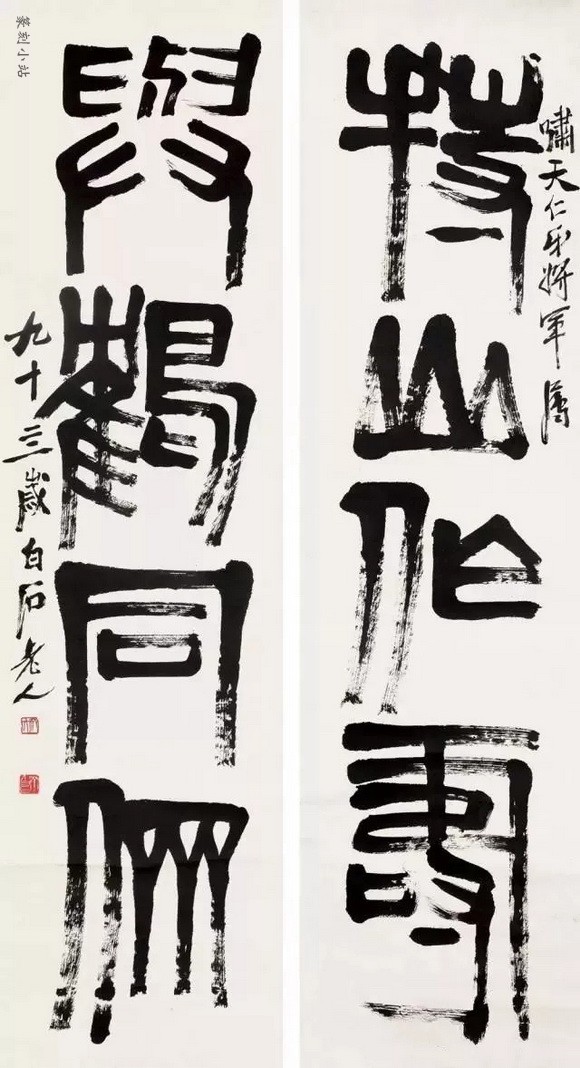 嘯天仁弟將軍屬
持山作壽
與鶴同
九十三歲白石老人
篆刻小站